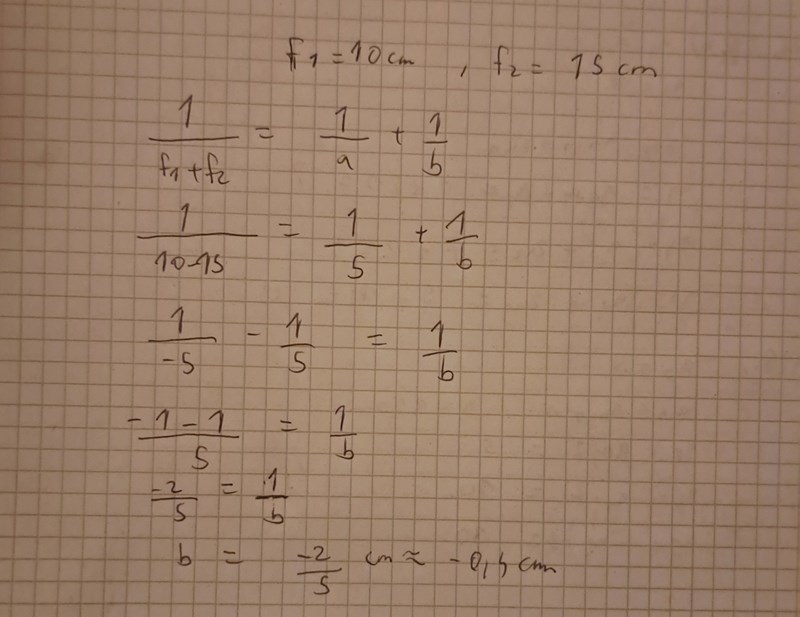 f1 = 10 cm , f2 = 15 cm
1/(f1+f2) = 1/a + 1/b
1/(10-15) = 1/5 + 1/b
1/-5 - 1/5 = 1/b
(-1-1)/5 = 1/b
-2/5 = 1/b
b = -2/5 cm ≈ -0,4 cm